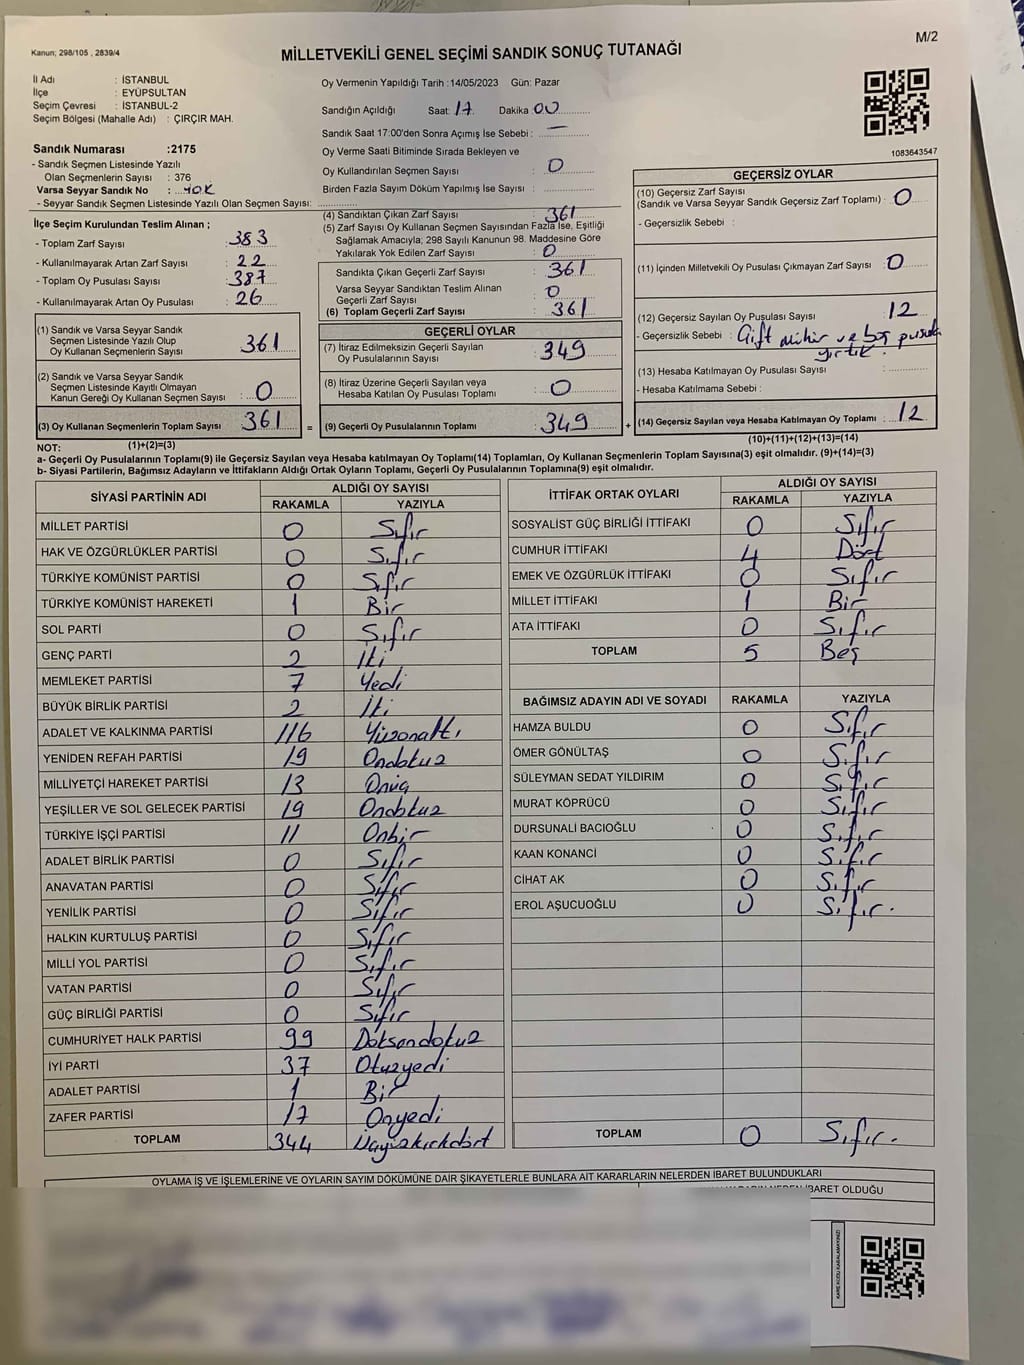 Kanun; 298/105 , 2839/4
MİLLETVEKİLİ GENEL SEÇİMİ SANDIK SONUÇ TUTANAĞI
M/2
İl Adı : İSTANBUL
İlçe : EYÜPSULTAN
Seçim Çevresi : İSTANBUL-2
Seçim Bölgesi (Mahalle Adı) : ÇIRÇIR MAH.
Sandık Numarası :2175
- Sandık Seçmen Listesinde Yazılı
Olan Seçmenlerin Sayısı : 376
Varsa Seyyar Sandık No : YOK
- Seyyar Sandık Seçmen Listesinde Yazılı Olan Seçmen Sayısı:
Oy Vermenin Yapıldığı Tarih :14/05/2023 Gün: Pazar
Sandığın Açıldığı Saat: 17 Dakika 00
Sandık Saat 17:00'den Sonra Açımış İse Sebebi : —
Oy Verme Saati Bitiminde Sırada Bekleyen ve
Oy Kullandırılan Seçmen Sayısı : 0
Birden Fazla Sayım Döküm Yapılmış İse Sayısı :
1083643547
İlçe Seçim Kurulundan Teslim Alınan ;
- Toplam Zarf Sayısı : 383
- Kullanılmayarak Artan Zarf Sayısı : 22
- Toplam Oy Pusulası Sayısı : 387
- Kullanılmayarak Artan Oy Pusulası : 26
(1) Sandık ve Varsa Seyyar Sandık
Seçmen Listesinde Yazılı Olup
Oy Kullanan Seçmenlerin Sayısı : 361
(2) Sandık ve Varsa Seyyar Sandık
Seçmen Listesinde Kayıtlı Olmayan
Kanun Gereği Oy Kullanan Seçmen Sayısı : 0
(3) Oy Kullanan Seçmenlerin Toplam Sayısı : 361 =
(1)+(2)=(3)
(4) Sandıktan Çıkan Zarf Sayısı : 361
(5) Zarf Sayısı Oy Kullanan Seçmen Sayısından Fazla İse, Eşitliği
Sağlamak Amacıyla; 298 Sayılı Kanunun 98. Maddesine Göre
Yakılarak Yok Edilen Zarf Sayısı : 0
Sandıkta Çıkan Geçerli Zarf Sayısı : 361
Varsa Seyyar Sandıktan Teslim Alınan
Geçerli Zarf Sayısı : 0
(6) Toplam Geçerli Zarf Sayısı : 361
GEÇERLİ OYLAR
(7) İtiraz Edilmeksizin Geçerli Sayılan
Oy Pusulalarının Sayısı : 349
(8) İtiraz Üzerine Geçerli Sayılan veya
Hesaba Katılan Oy Pusulası Toplamı : 0
(9) Geçerli Oy Pusulalarının Toplamı : 349 +
GEÇERSİZ OYLAR
(10) Geçersiz Zarf Sayısı
(Sandık ve Varsa Seyyar Sandık Geçersiz Zarf Toplamı) : 0
- Geçersizlik Sebebi :
(11) İçinden Milletvekili Oy Pusulası Çıkmayan Zarf Sayısı : 0
(12) Geçersiz Sayılan Oy Pusulası Sayısı : 12
- Geçersizlik Sebebi : Çift mühür ve boş pusula
yırtık.
(13) Hesaba Katılmayan Oy Pusulası Sayısı :
- Hesaba Katılmama Sebebi :
(14) Geçersiz Sayılan veya Hesaba Katılmayan Oy Toplamı : 12
(10)+(11)+(12)+(13)=(14)
NOT:
a- Geçerli Oy Pusulalarının Toplamı(9) ile Geçersiz Sayılan veya Hesaba katılmayan Oy Toplamı(14) Toplamları, Oy Kullanan Seçmenlerin Toplam Sayısına(3) eşit olmalıdır. (9)+(14)=(3)
b- Siyasi Partilerin, Bağımsız Adayların ve İttifakların Aldığı Ortak Oyların Toplamı, Geçerli Oy Pusulalarının Toplamına(9) eşit olmalıdır.
SİYASİ PARTİNİN ADI ALDIĞI OY SAYISI
RAKAMLA YAZIYLA
MİLLET PARTİSİ 0 Sıfır
HAK VE ÖZGÜRLÜKLER PARTİSİ 0 Sıfır
TÜRKİYE KOMÜNİST PARTİSİ 0 Sıfır
TÜRKİYE KOMÜNİST HAREKETİ 1 Bir
SOL PARTİ 0 Sıfır
GENÇ PARTİ 2 İki
MEMLEKET PARTİSİ 7 Yedi
BÜYÜK BİRLİK PARTİSİ 2 İki
ADALET VE KALKINMA PARTİSİ 116 Yüzonaltı
YENİDEN REFAH PARTİSİ 19 Ondokuz
MİLLİYETÇİ HAREKET PARTİSİ 13 Onüç
YEŞİLLER VE SOL GELECEK PARTİSİ 19 Ondokuz
TÜRKİYE İŞÇİ PARTİSİ 11 Onbir
ADALET BİRLİK PARTİSİ 0 Sıfır
ANAVATAN PARTİSİ 0 Sıfır
YENİLİK PARTİSİ 0 Sıfır
HALKIN KURTULUŞ PARTİSİ 0 Sıfır
MİLLİ YOL PARTİSİ 0 Sıfır
VATAN PARTİSİ 0 Sıfır
GÜÇ BİRLİĞİ PARTİSİ 0 Sıfır
CUMHURİYET HALK PARTİSİ 99 Doksandokuz
İYİ PARTİ 37 Otuzyedi
ADALET PARTİSİ 1 Bir
ZAFER PARTİSİ 17 Onyedi
TOPLAM 344 Üçyüzkırkdört
İTTİFAK ORTAK OYLARI ALDIĞI OY SAYISI
RAKAMLA YAZIYLA
SOSYALİST GÜÇ BİRLİĞİ İTTİFAKI 0 Sıfır
CUMHUR İTTİFAKI 4 Dört
EMEK VE ÖZGÜRLÜK İTTİFAKI 0 Sıfır
MİLLET İTTİFAKI 1 Bir
ATA İTTİFAKI 0 Sıfır
TOPLAM 5 Beş
BAĞIMSIZ ADAYIN ADI VE SOYADI RAKAMLA YAZIYLA
HAMZA BULDU 0 Sıfır
ÖMER GÖNÜLTAŞ 0 Sıfır
SÜLEYMAN SEDAT YILDIRIM 0 Sıfır
MURAT KÖPRÜCÜ 0 Sıfır
DURSUNALİ BACIOĞLU 0 Sıfır
KAAN KONANCİ 0 Sıfır
CİHAT AK 0 Sıfır
EROL AŞUCUOĞLU 0 Sıfır.
TOPLAM 0 Sıfır.
OYLAMA İŞ VE İŞLEMLERİNE VE OYLARIN SAYIM DÖKÜMÜNE DAİR ŞİKAYETLERLE BUNLARA AİT KARARLARIN NELERDEN İBARET BULUNDUKLARI
İBARET OLDUĞU
KARE KODU KARALAMAYINIZ!